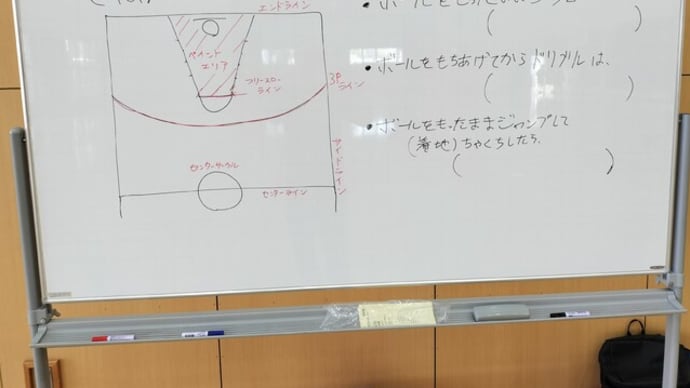 エンドライン
ペイント
エリア
フリースロー
ライン
3P
ライン
サイドライン
センターサークル
センターライン
( )
・ボールをもちあげてからドリブルは、
( )
・ボールをもったままジャンプして
(着地)ちゃくちしたら、
( )